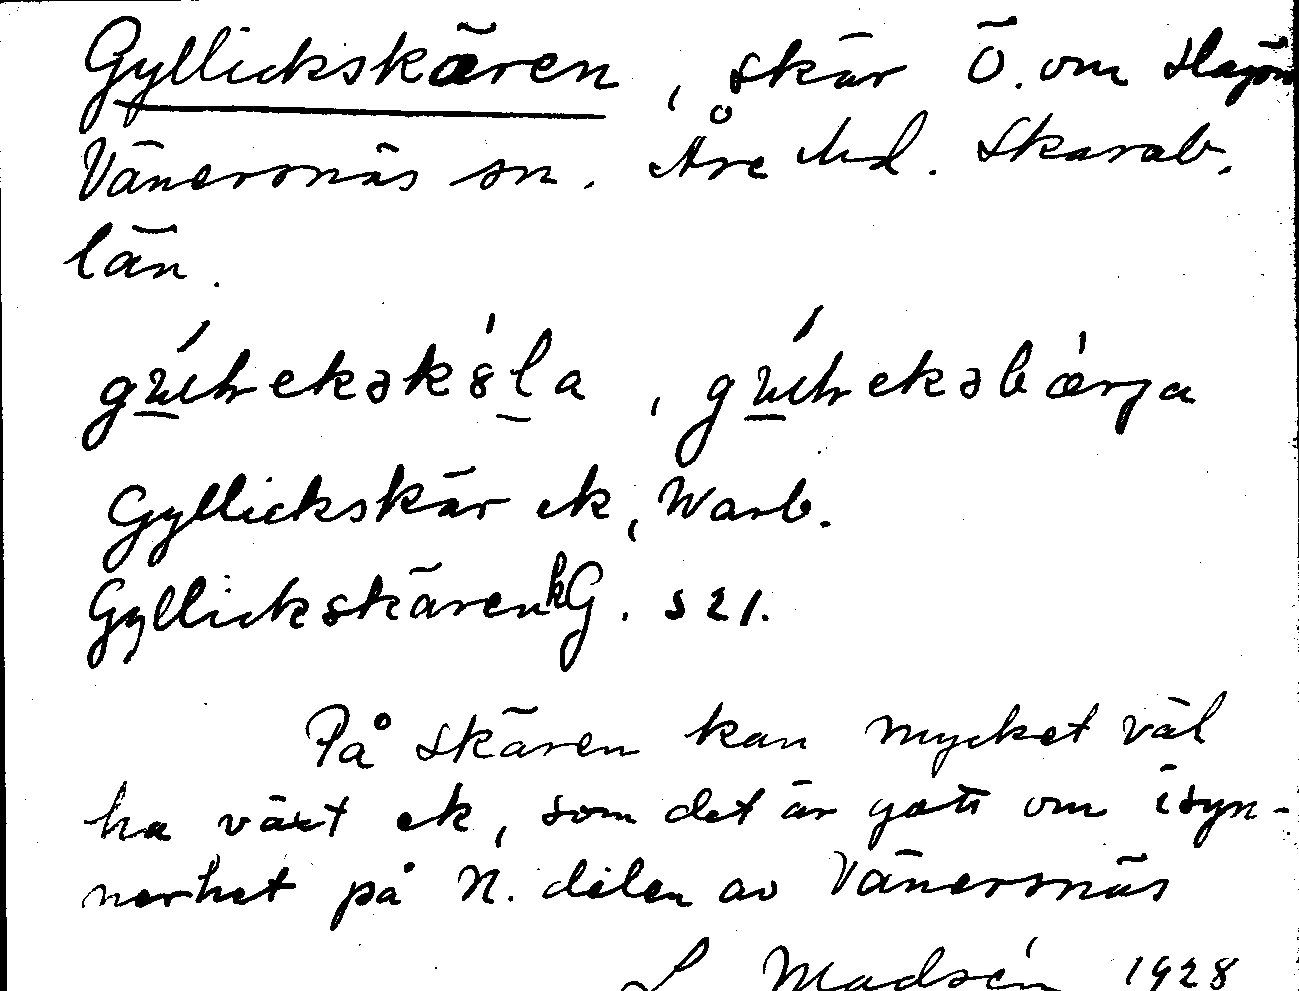 Gyllickskären, skär Ö. om Hajöns
Vänersnäs sn. Åse hd. Skarab.
län.
Gyllickskär ek, Warb.
Gyllickskären kG. s 21.
På skären kan mycket väl
ha växt ek, som det är gott om isyn-
nerhet på N. delen av Vänersnäs
L Madsén 1928